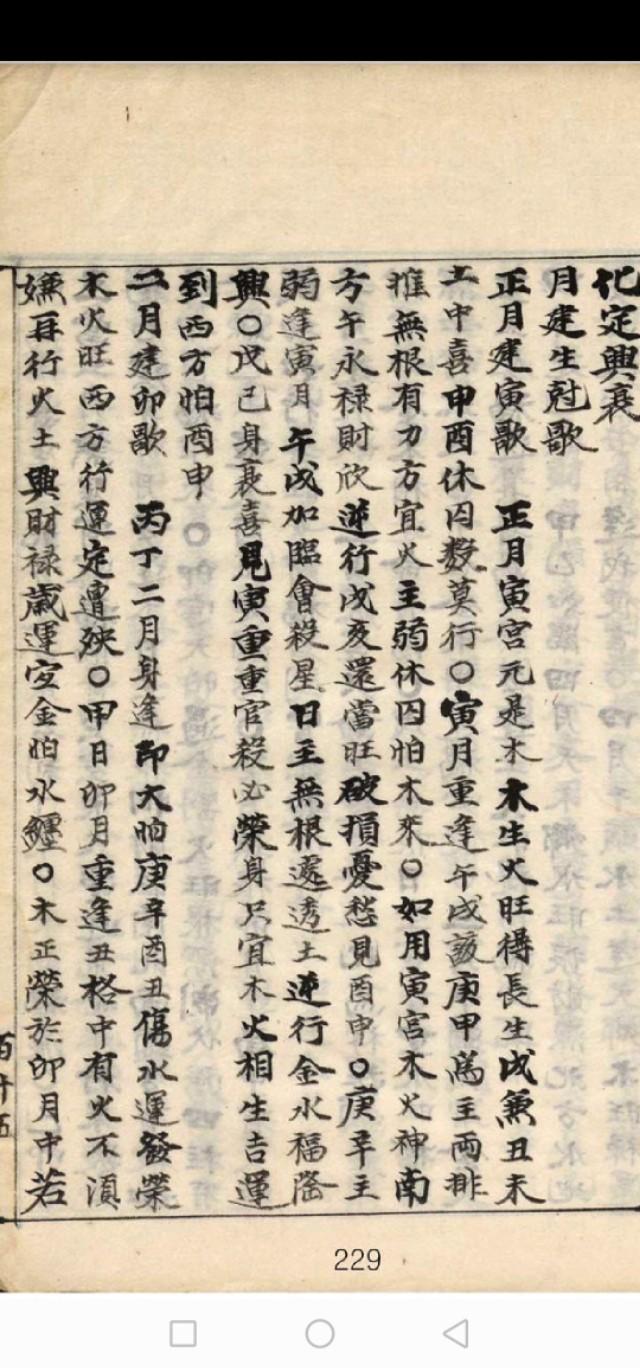 化定興衰
月建生尅歌
正月建寅歌　正月寅宮元是木木生火旺得長生戌無丑未
土中喜申酉休囚数莫行〇寅月重逢午戌該庚甲為主両排
推無根有力方宜火主弱休囚怕木來〇如用寅宮木火神南
方午永禄財欣逆行戌亥還當旺破損憂愁見酉申〇庚辛主
弱逢寅月午戌加臨會殺星日主無根還透土逆行金水福隆
興〇戊己身衰喜見寅重重官殺必榮身只宜木火相生吉運
到西方怕酉申
二月建卯歌　丙丁二月身逢印大怕庚辛酉丑傷水運發榮
木火旺西方行運定遭殃〇甲日卯月重逢丑格中有火不須
嫌再行火土興財禄歳運安金怕水纏〇木正榮於卯月中若
百十五
229